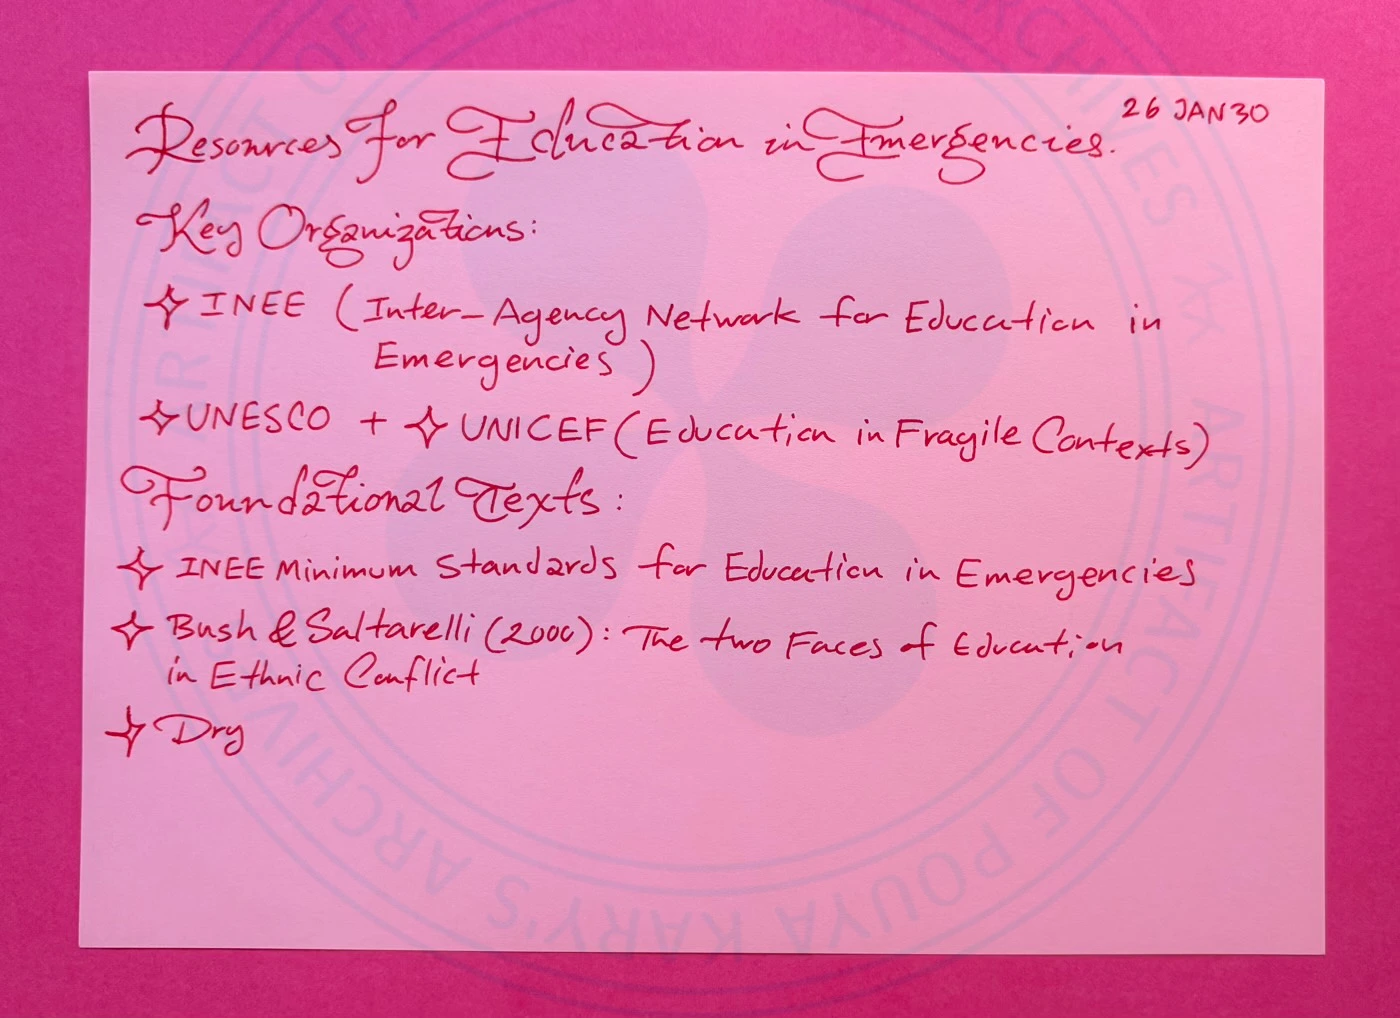 26 JAN 30
Resources for Education in Emergencies.
Key Organizations:
✧ INEE (Inter-Agency Network for Education in
Emergencies)
✧ UNESCO + ✧ UNICEF (Education in Fragile Contexts)
Foundational Texts:
✧ INEE Minimum Standards for Education in Emergencies
✧ Bush & Saltarelli (2000): The two Faces of Education
in Ethnic Conflict
✧ Dry
ARTIFACT OF POUYA KARY'S ARCHIVES